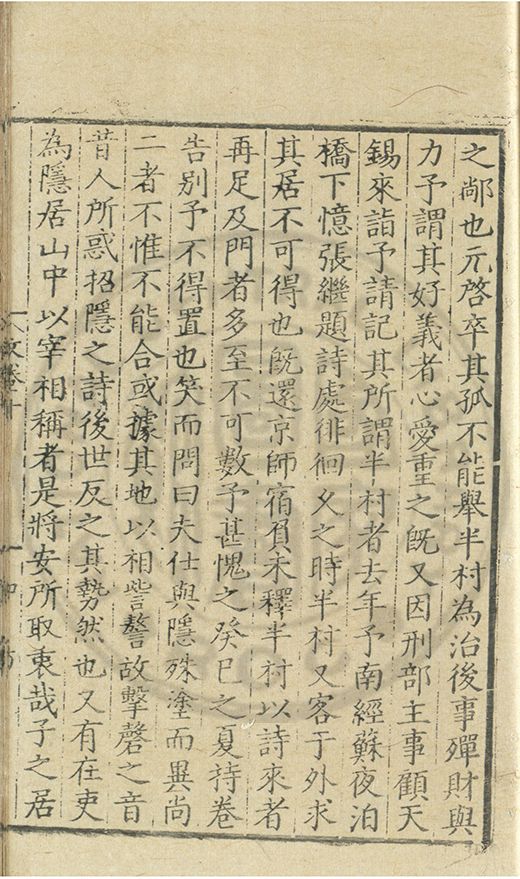 之鄰也元啓卒其孤不能舉半村為治後事殫財與
力予謂其好義者心愛重之旣又因刑部主事顧天
錫來詣予請記其所謂半村者去年予南經蘇夜泊
橋下憶張繼題詩處徘徊久之時半村又客于外求
其居不可得也旣還京師宿負未釋半村以詩來者
再足及門者多至不可數予甚愧之癸巳之夏持卷
告别予不得置也笑而問曰夫仕與隱殊塗而異尚
二者不惟不能合或據其地以相訾謷故擊磬之音
昔人所惑招隱之詩後世反之其勢然也又有在吏
為隱居山中以宰相稱者是將安所取衷哉子之居